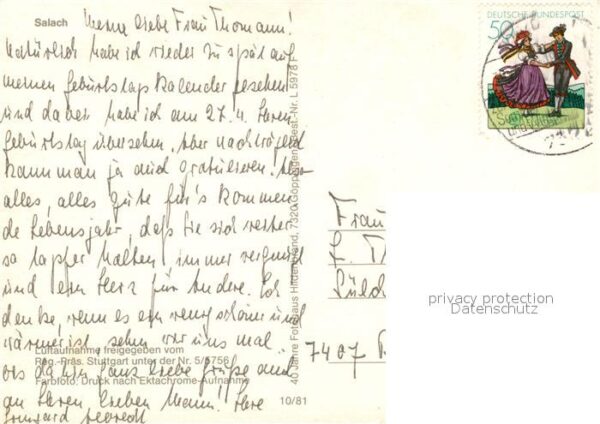 Salach
Meine liebe Frau Thomann!
Natürlich habe ich wieder zu spät auf
meinen Geburtstagskalender gesehen
und dabei habe ich am 27.4. Ihren
Geburtstag übersehen, aber nachträglich
kann man ja auch gratulieren. Also
alles, alles gute für's kommen-
de Lebensjahr, daß Sie sich weiter
so tapfer halten, immer vergnügt
und ein Herz für Andere. Ich
denke, wenn es ein wenig schöner und
wärmer ist, sehn wir uns mal
bis dahin ganz liebe Grüße auch
an Ihren lieben Mann! Ihre
Irmgard
Luftaufnahme freigegeben vom
Reg.-Präs. Stuttgart unter der Nr. 5/5756
Farbfoto: Druck nach Ektachrome-Aufnahme
10/81
40 Jahre Fotohaus Hildenbrand, 7320 Göppingen, Best.-Nr. L 5978 F
DEUTSCHE BUNDESPOST
50
Frau
7407
privacy protection
Datenschutz